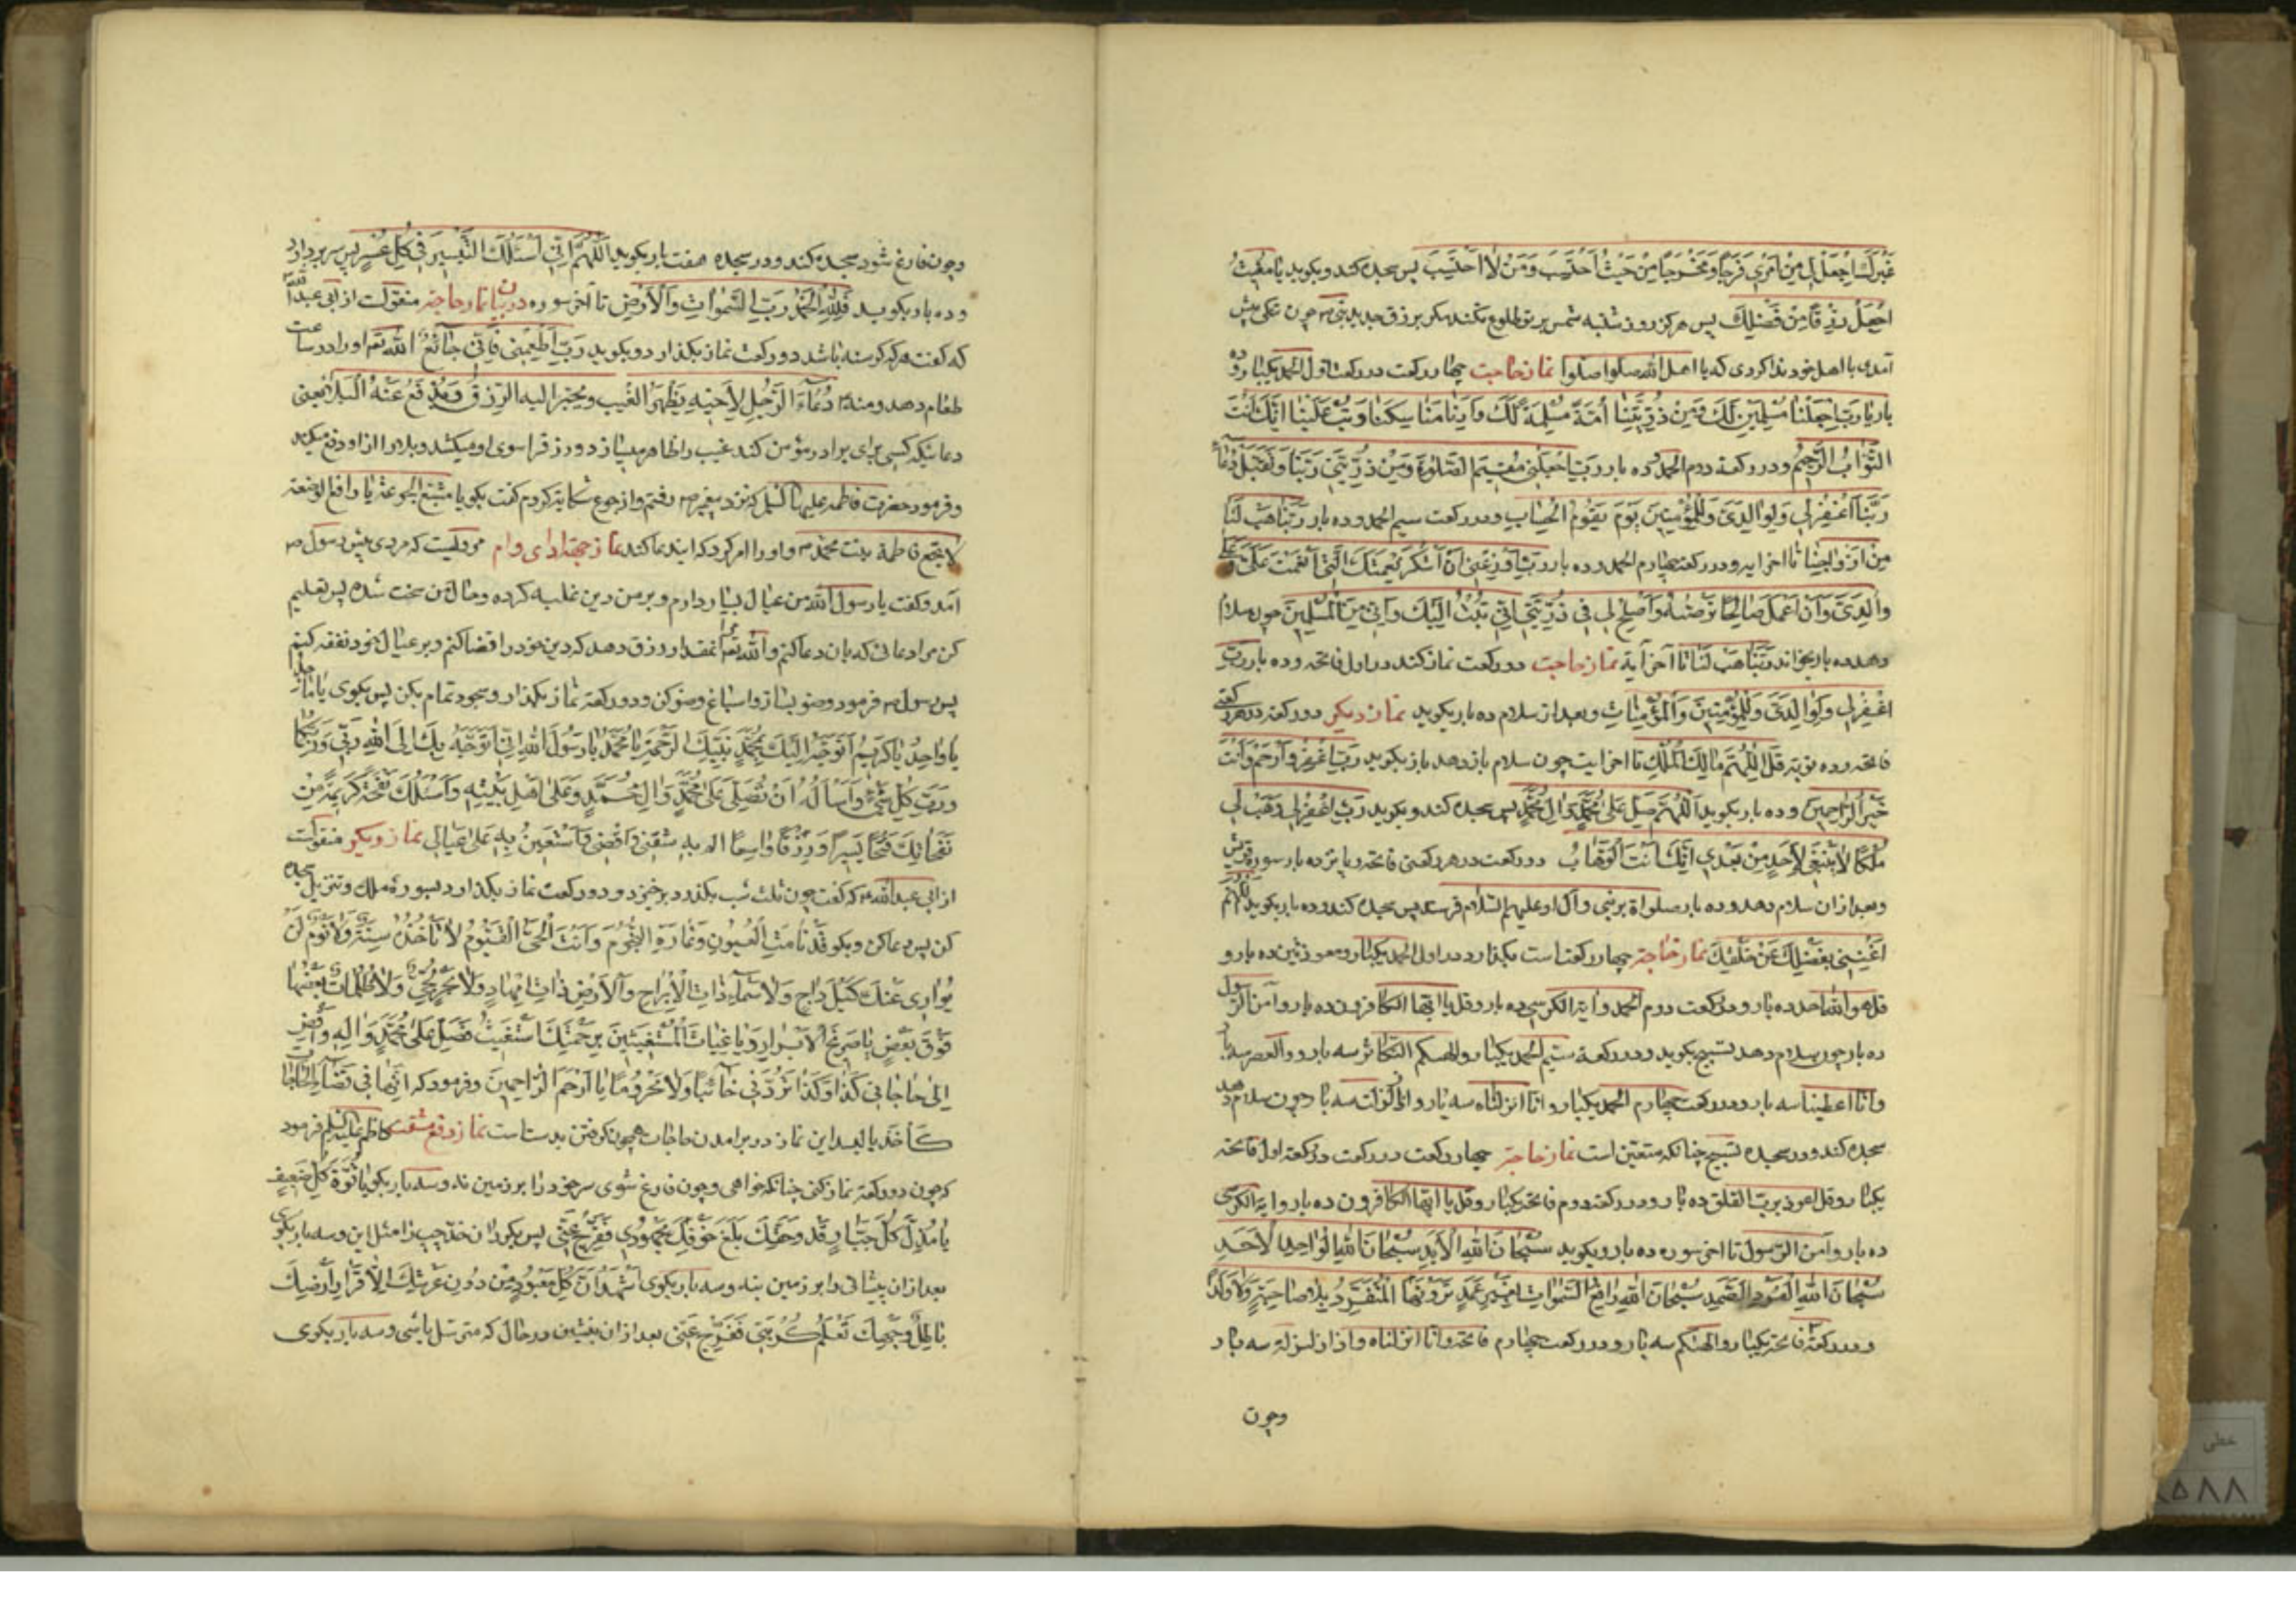 غَيْرَكَ اِجْعَلْ لِي مِنْ اَمْرِي فَرَجًا وَمَخْرَجًا مِنْ حَيْثُ اَحْتَسِبُ وَمِنْ حَيْثُ لَا اَحْتَسِبُ پس سجده کند و بکوید یا مغیث
اجعل رزقا من فضلك پس هرکز روز شنبه شمس بر تو طلوع نکند مکر برزق جدید
آمدی با اهل خود ندا کردی که یا اهل الله صلوا صلوا نماز حاجت چهار رکعت در رکعت اول الحمد یکبار و ده
بار یا رب اجعلنا مسلمین لك ومن ذریتنا امة مسلمة لك وارنا مناسكنا وتب علینا انك انت
التواب الرحیم و در رکعة دوم الحمد و ده بار رب اجعلنی مقیم الصلوة ومن ذریتی ربنا وتقبل دعاء
ربنا اغفر لی ولوالدی وللمؤمنین یوم یقوم الحساب و در رکعت سیم الحمد و ده بار ربنا هب لنا
من ازواجنا تا اخر ایه و در رکعة چهارم الحمد و ده بار رب اوزعنی ان اشکر نعمتك التی انعمت علی وعلی
والدی وان اعمل صالحا ترضیه واصلح لی فی ذریتی انی تبت الیك وانی من المسلمین چون سلام
دهد ده بار بخواند ربنا هب لنا تا آخر آیة نماز حاجت دو رکعت نماز کند در اول فاتحه و ده بار رب
اغفر لی ولوالدی وللمؤمنین والمؤمنات و بعد از سلام ده بار بکوید نماز دیکر دو رکعة در هر رکعتی
فاتحه و ده نوبة قل اللهم مالك الملك تا اخر ایت چون سلام باز دهد باز بکوید رب اغفر وارحم وانت
خیر الراحمین و ده بار بکوید اللهم صل علی محمد وال محمد پس سجده کند و بکوید رب اغفر لی وهب لی
ملکا لا ینبغی لاحد من بعدی انك انت الوهاب دو رکعت در هر رکعتی فاتحه و پانزده بار سورۀ قریش
و بعد از ان سلام دهد و ده بار صلواة بر نبی و آل او علیهم السلام فرستد پس سجده کند و ده بار بکوید اللهم
اغننی بفضلك عن خلقك نماز حاجة چهار رکعت است بکذارد در اول الحمد یکبار و معوذتین ده بار و
قل هو الله احد ده بار و در رکعت دوم الحمد و ایة الکرسی ده بار و قل یا ایها الکافرون ده بار و آمن الرسول
ده بار چون سلام دهد تسبیح بکوید و در رکعة سیم الحمد یکبار و الهیکم التکاثر سه بار و والعصر سه بار
و انا اعطینا سه بار و در رکعت چهارم الحمد یکبار و انا انزلناه سه بار و اذا زلزلت سه بار چون سلام دهد
سجده کند و در سجده تسبیح چنانکه متعین است نماز حاجة چهار رکعت در رکعت اول فاتحه
یکبار و قل اعوذ برب الفلق ده بار و در رکعت دوم فاتحه یکبار و قل یا ایها الکافرون ده بار و ایة الکرسی
ده بار و آمن الرسول تا اخر سوره ده بار و بکوید سبحان الله الابد سبحان الله الواحد الاحد
سبحان الله الفرد الصمد سبحان الله رافع السموات بغیر عمد ترونها المتفرد بلا صاحبة ولا ولد
و در رکعة ۳ فاتحه یکبار و الهیکم سه بار و در رکعت چهارم فاتحه و انا انزلناه و اذا زلزلة سه بار
وچون
وچون فارغ شود سجده کند و در سجده هفت بار بکوید اللهم انی اسئلك التیسیر فی کل عسیر پس سر بردارد
و ده بار بکوید فلله الحمد رب السموات والارض تا آخر سوره در بیان نماز حاجة منقولست از ابی عبدالله
که کفت هرکه کرسنه باشد دو رکعت نماز بکذارد و بکوید رب اطعمنی فانی جائع الله تعم او را در ساعت
طعام دهد و منه دعاء الرجل لاخیه بظهر الغیب الیه الرزق ویدفع عنه البلا یعنی
دعائیکه کسی برای برادر مؤمن کند و رزق را سوی او میکشد و بلا را از او دفع میکند
و فرمود حضرت فاطمه علیها نزد پیغمبر ص رفتم و از جوع شکایة کردم کفت بکو یا مشبع الجوعة یا رافع الوضعة
لا تجع فاطمة بنت محمد ص و او را امر کرد که ایند عا کند نماز جهة ادای وام مرویست که مردی پیش رسول ص
آمد و کفت یا رسول الله من عیال بسیار دارم و بر من دین غلبه کرده و حال من سخت شده پس تعلیم
کن مرا دعائی که بان دعا کنم و الله تعم انمقدار رزق دهد که دین خود را قضا کنم و بر عیال خود نفقه کنم
پس رسول ص فرمود وضو بساز و اسباغ وضو کن و دو رکعة نماز بکذار و سجود تمام بکن پس بکوی یا ماجد
یا واحد یا کریم اتوجه الیك بمحمد نبیك نبی الرحمة یا محمد یا رسول الله انی اتوجه بك الی الله ربی وربك
ورب کل شیء واسأله ان تصلی علی محمد وال محمد وعلی اهل بیته واسئلك نفحة کریمة من
نفحاتك فتحا یسیرا ورزقا واسعا الم به شعثی واقضی واستعین به علی عیالی نماز دیکر منقولست
از ابی عبدالله ع که کفت چون ثلث شب بکذرد برخیزد و دو رکعت نماز بکذارد بسورۀ ملك و تنزیل سجده
کن پس دعا کن و بکو قد نامت العیون وغارت النجوم وانت الحی القیوم لا تأخذه سنة ولا نوم لن
یواری عنك لیل داج ولا سماء ذات الابراج والارض ذات مهاد ولا بحر لجی ولا ظلمات بعضها
فوق بعض یا صریخ الابرار ویا غیاث المستغیثین برحمتك استغیث فصل علی محمد واله واقض
الی حاجاتی کذا وکذا تردنی خائبا ولا محروما یا ارحم الراحمین و فرمود که انها فی قضاء الحاجات
کأخذ بالید این نماز در برامدن حاجات همچون کرفتن بدست است نماز دفع مشقت کاظم علیه السلم فرمود
که چون دو رکعة نماز کنی چنانکه خواهی و چون فارغ شوی سر خود را بر زمین نه و سه بار بکو یا قوة کل ضعیف
یا مذل کل جبار قد وحقك بلغ خوفك مجهودی ففرج عنی پس بکردان خد چپ را مثل این و سه بار بکوی
بعد از ان پیشانی را بر زمین بنه و سه بار بکوی اشهد ان کل معبود من دون عرشك الی قرار ارضك
باطل وجهك تعلم کربتی ففرج عنی بعد از ان بنشین در حال که مترسل باشی و سه بار بکوی
خطی
۵۸۸